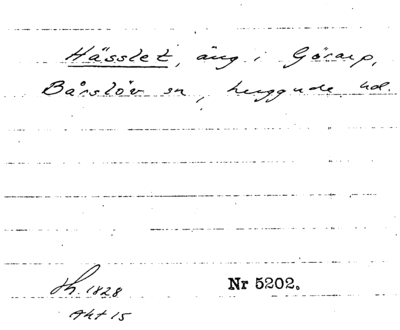 Hässlet, äng i Görarp,
Bårslöv sn, Luggude hd.
Nr 5202.
Sh. 1828
Akt 15